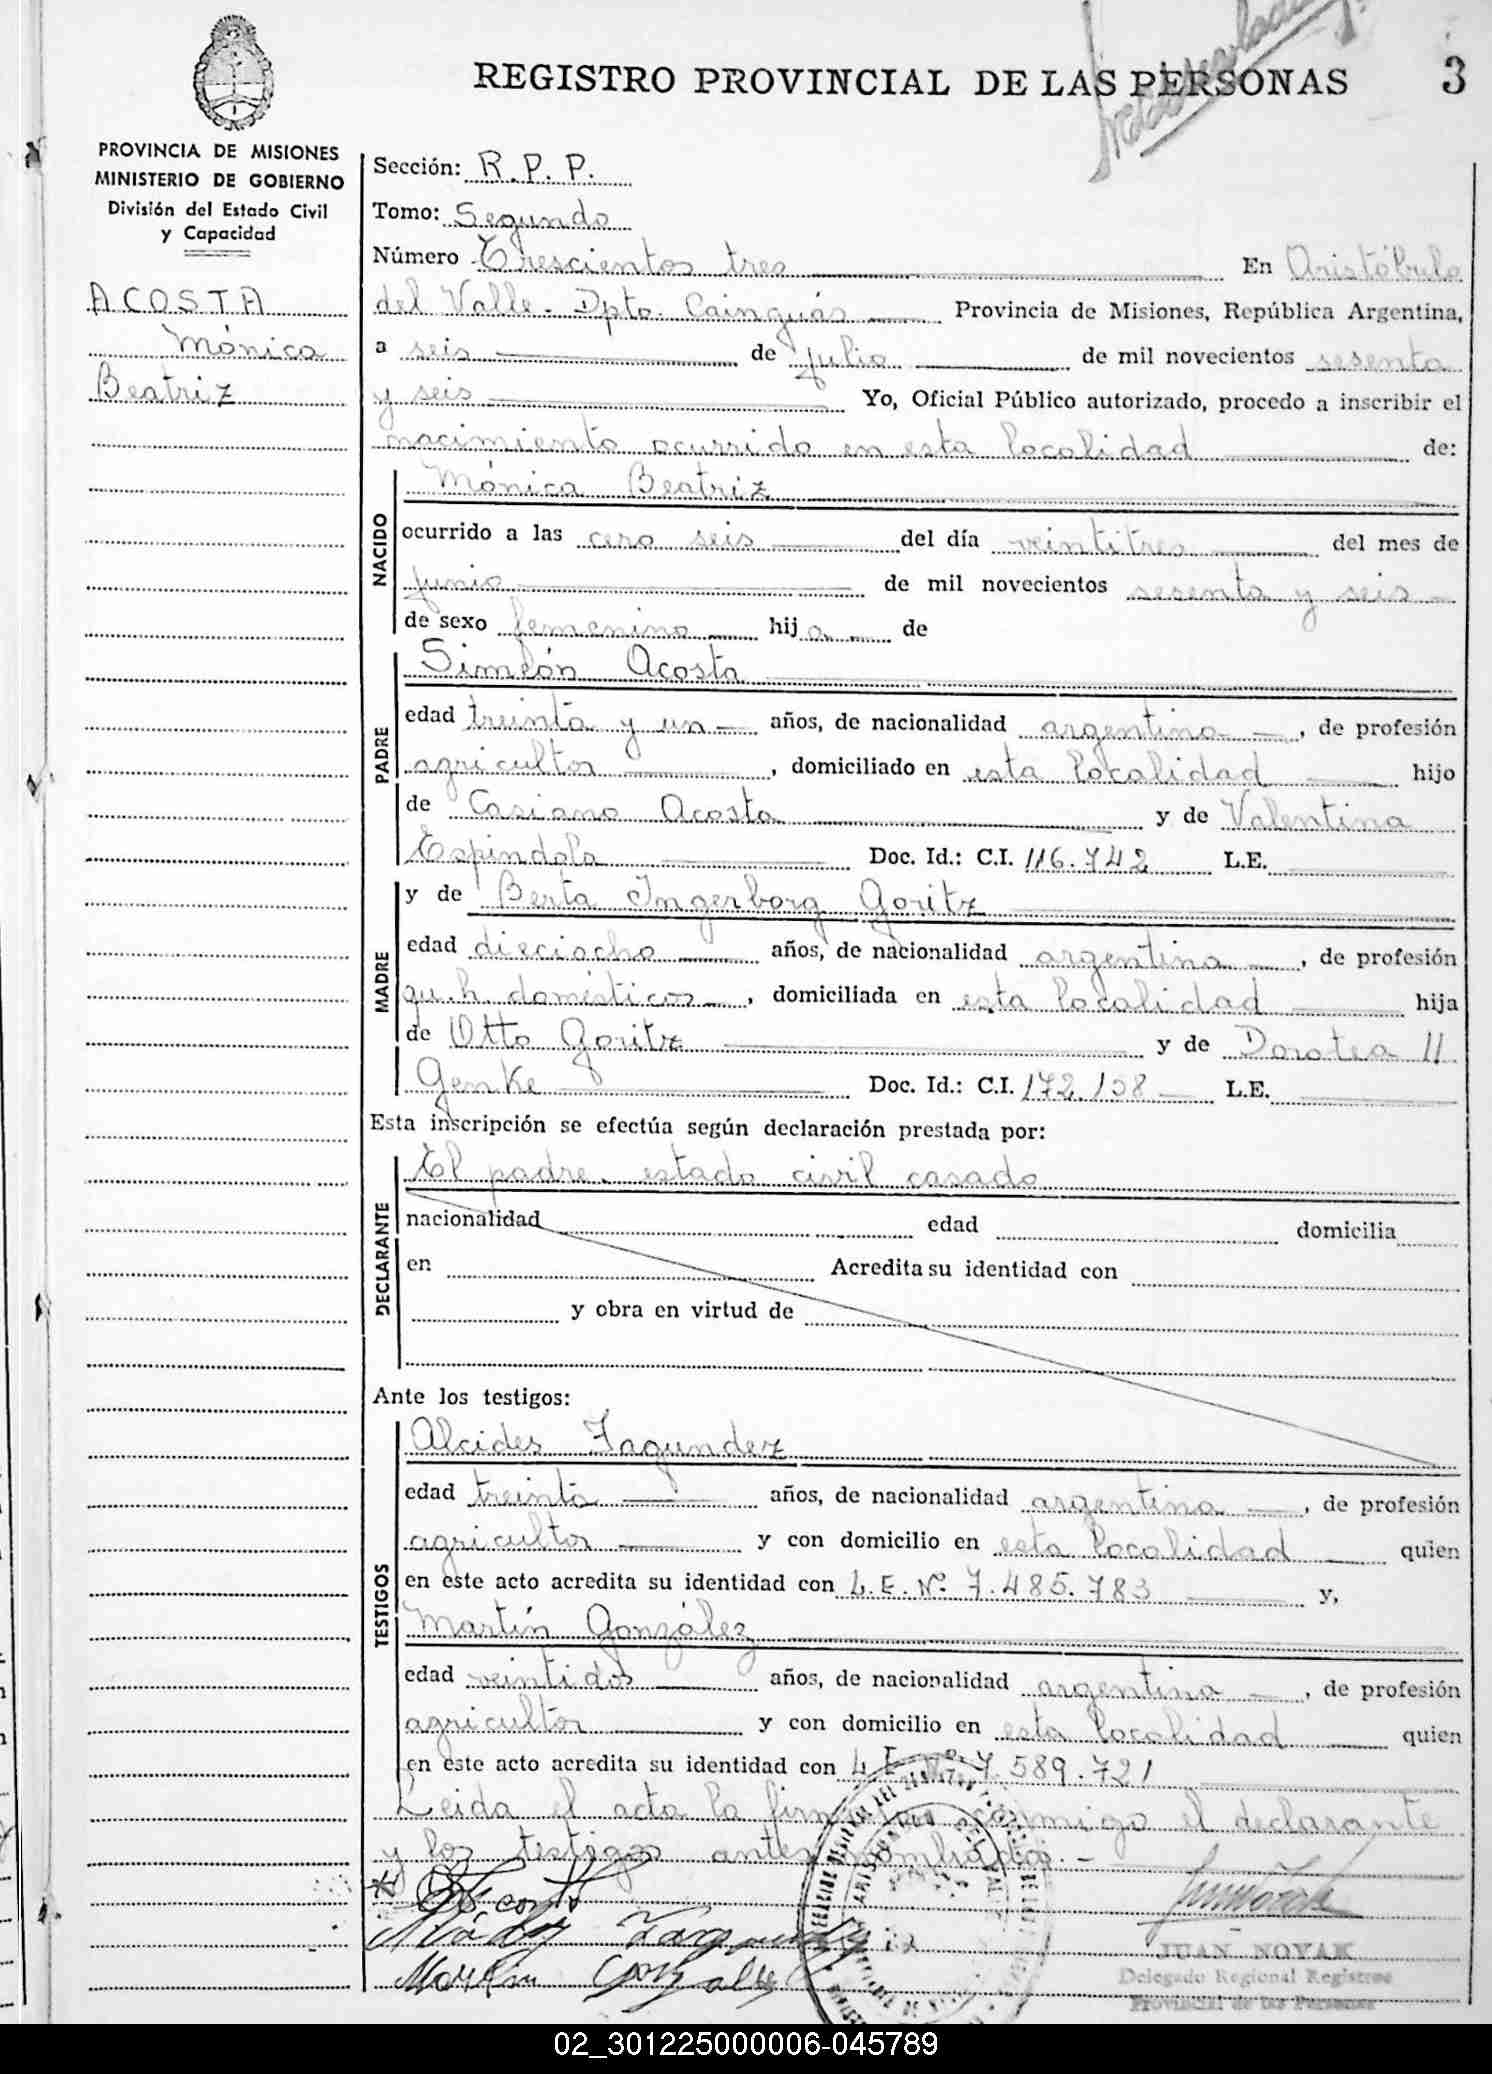 REGISTRO PROVINCIAL DE LAS PERSONAS 3
PROVINCIA DE MISIONES
MINISTERIO DE GOBIERNO
División del Estado Civil
y Capacidad
ACOSTA
Mónica
Beatriz
Sección: R.P.P.
Tomo: Segundo
Número Trescientos tres En Aristóbulo
del Valle. Dpto. Cainguás Provincia de Misiones, República Argentina,
a seis de julio de mil novecientos sesenta
y seis Yo, Oficial Público autorizado, procedo a inscribir el
nacimiento ocurrido en esta localidad de:
NACIDO
Mónica Beatriz
ocurrido a las cero seis del día veintitres del mes de
junio de mil novecientos sesenta y seis
de sexo femenino hija de
PADRE
Simeón Acosta
edad treinta y un años, de nacionalidad argentina, de profesión
agricultor, domiciliado en esta localidad hijo
de Casiano Acosta y de Valentina
Espindola Doc. Id.: C.I. 116.742 L.E.
MADRE
y de Berta Ingerborg Goritz
edad dieciocho años, de nacionalidad argentina, de profesión
qu.h. domésticos, domiciliada en esta localidad hija
de Otto Goritz y de Dorotea
Genke Doc. Id.: C.I. 172.158 L.E.
Esta inscripción se efectúa según declaración prestada por:
DECLARANTE
El padre, estado civil casado
nacionalidad edad domicilia
en Acredita su identidad con
y obra en virtud de
Ante los testigos:
TESTIGOS
Alcides Fagundez
edad treinta años, de nacionalidad argentina, de profesión
agricultor y con domicilio en esta localidad quien
en este acto acredita su identidad con L.E. Nº 7.485.783 y,
Martín González
edad veintidos años, de nacionalidad argentina, de profesión
agricultor y con domicilio en esta localidad quien
en este acto acredita su identidad con L.E. Nº 7.589.721
Leida el acta la firman conmigo el declarante
y los testigos antes nombrados.-
JUAN NOVAK
Delegado Regional Registros
Provincial de las Personas
02_301225000006-045789